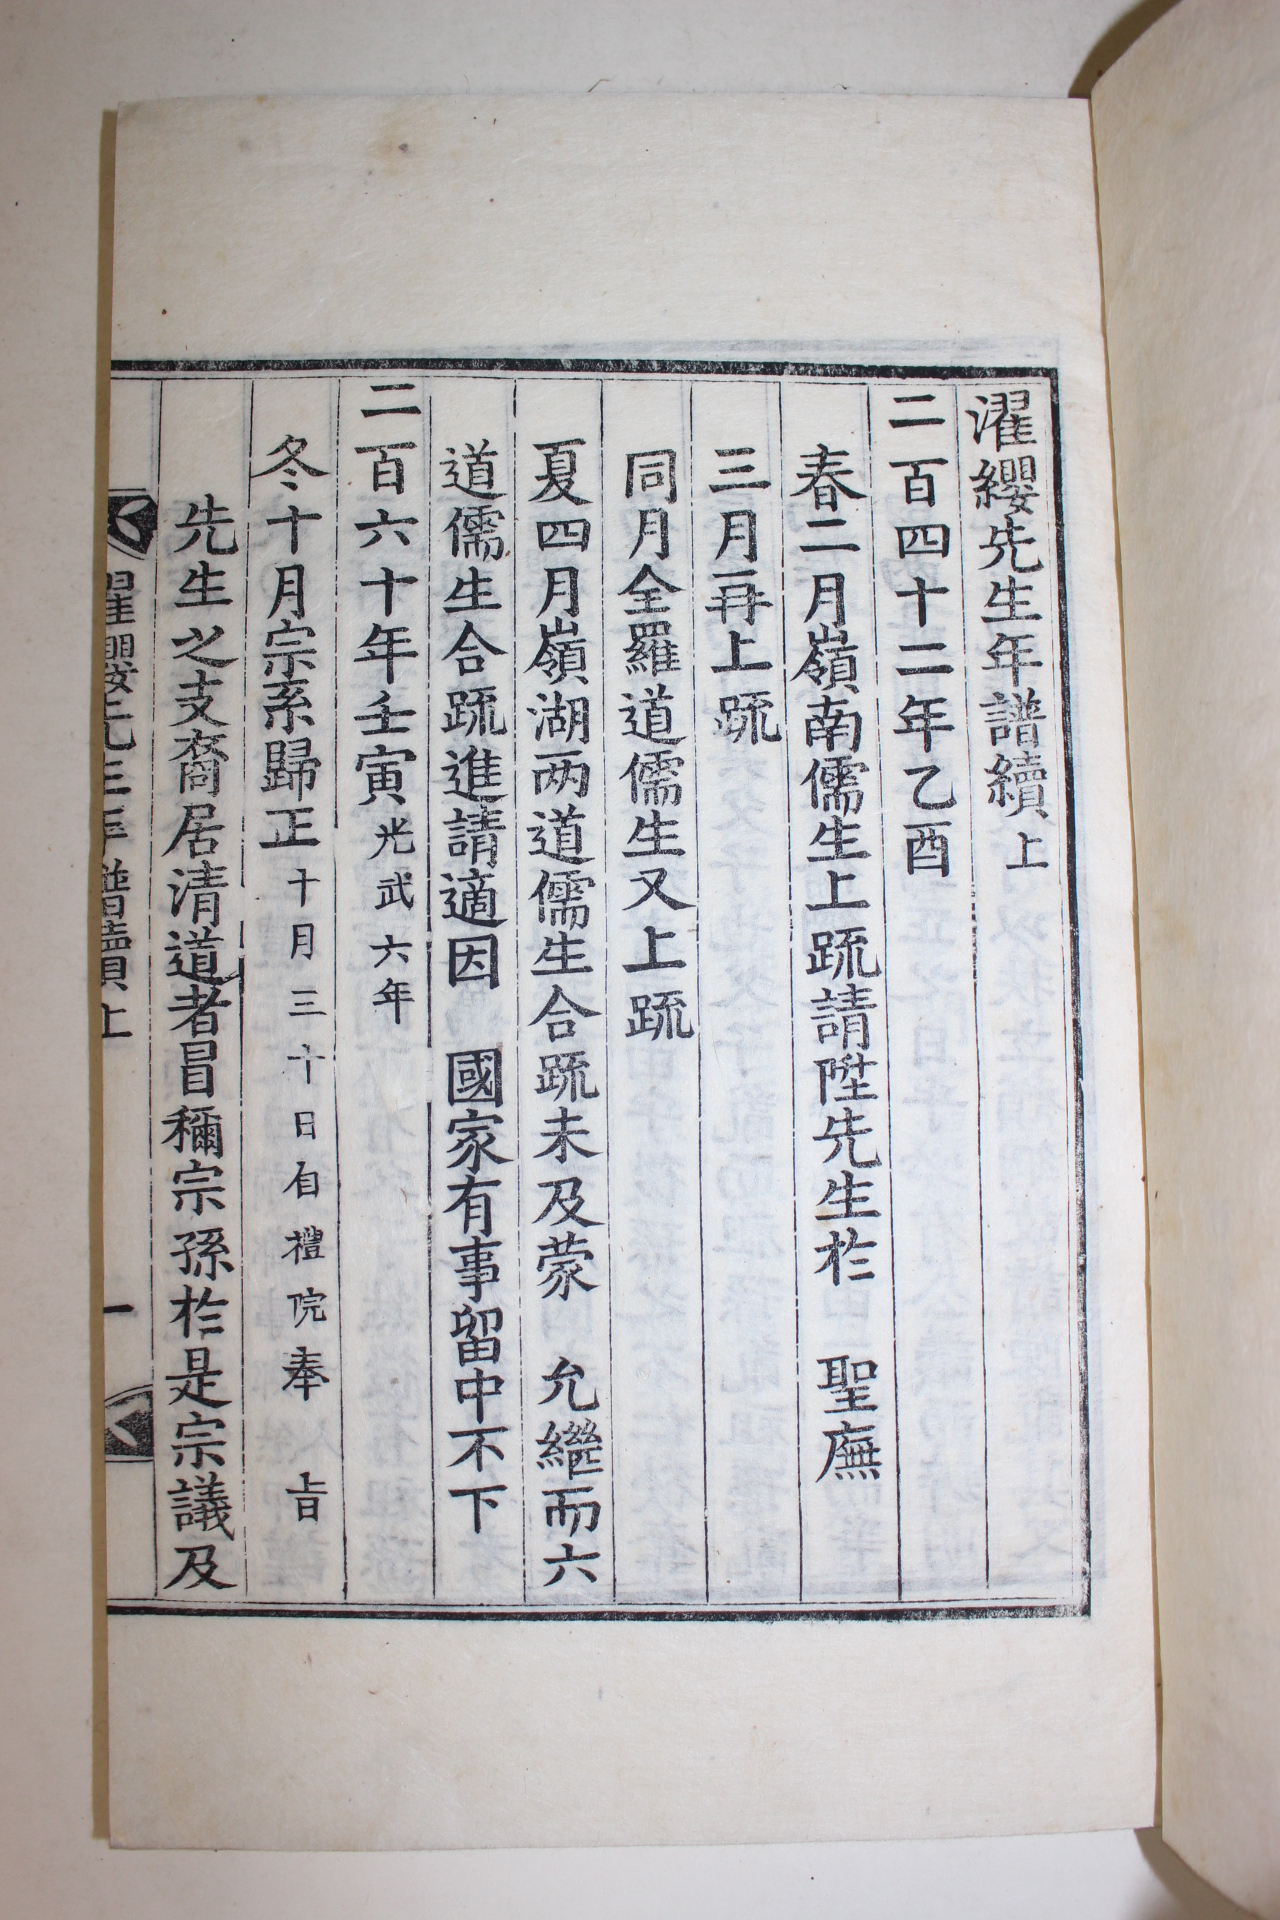 濯纓先生年譜續上
二百四十二年乙酉
春二月嶺南儒生上疏請陞先生於　聖廡
三月再上疏
同月全羅道儒生又上疏
夏四月嶺湖两道儒生合疏未及蒙　允繼而六
道儒生合疏進請適因　國家有事留中不下
二百六十年壬寅光武六年
冬十月宗系歸正十月三十日自禮院奉　旨
先生之支裔居清道者冒稱宗孫於是宗議及
濯纓先生年譜續上　一